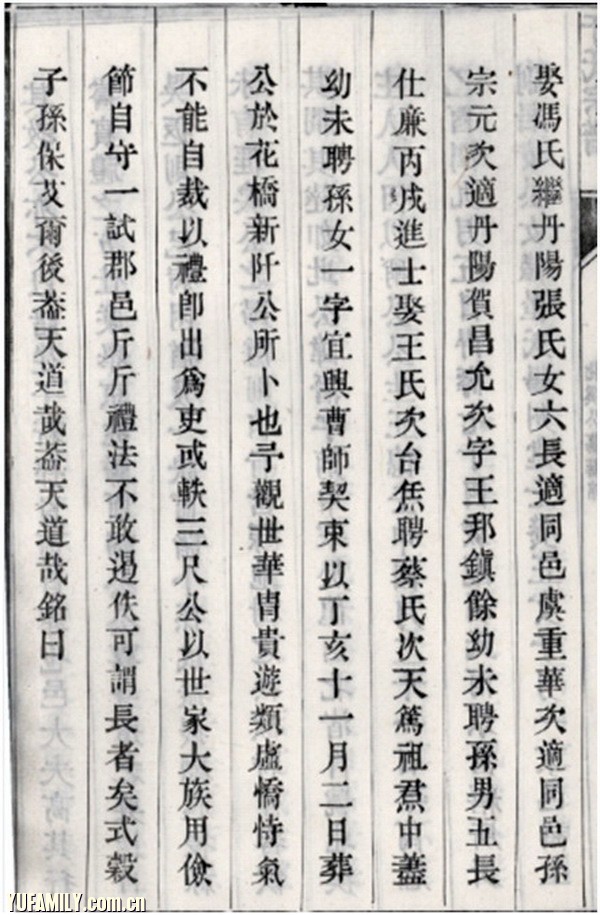 娶馮氏繼丹陽張氏女六長適同邑虞重華次適同邑孫
宗元次適丹陽賀昌允次字王邦鎮餘幼未聘孫男五長
仕廉丙戌進士娶王氏次台焦聘蔡氏次天篤祖焄中藎
幼未聘孫女一字宜興曹師契東以丁亥十一月二日葬
公於花橋新阡公所卜也予觀世華冑貴遊類虛憍恃氣
不能自裁以禮卽出爲吏或軼三尺公以世家大族用儉
節自守一試郡邑斤斤禮法不敢逷佚可謂長者矣式穀
子孫保艾爾後葢天道哉葢天道哉銘曰
YUFAMILY.com.cn